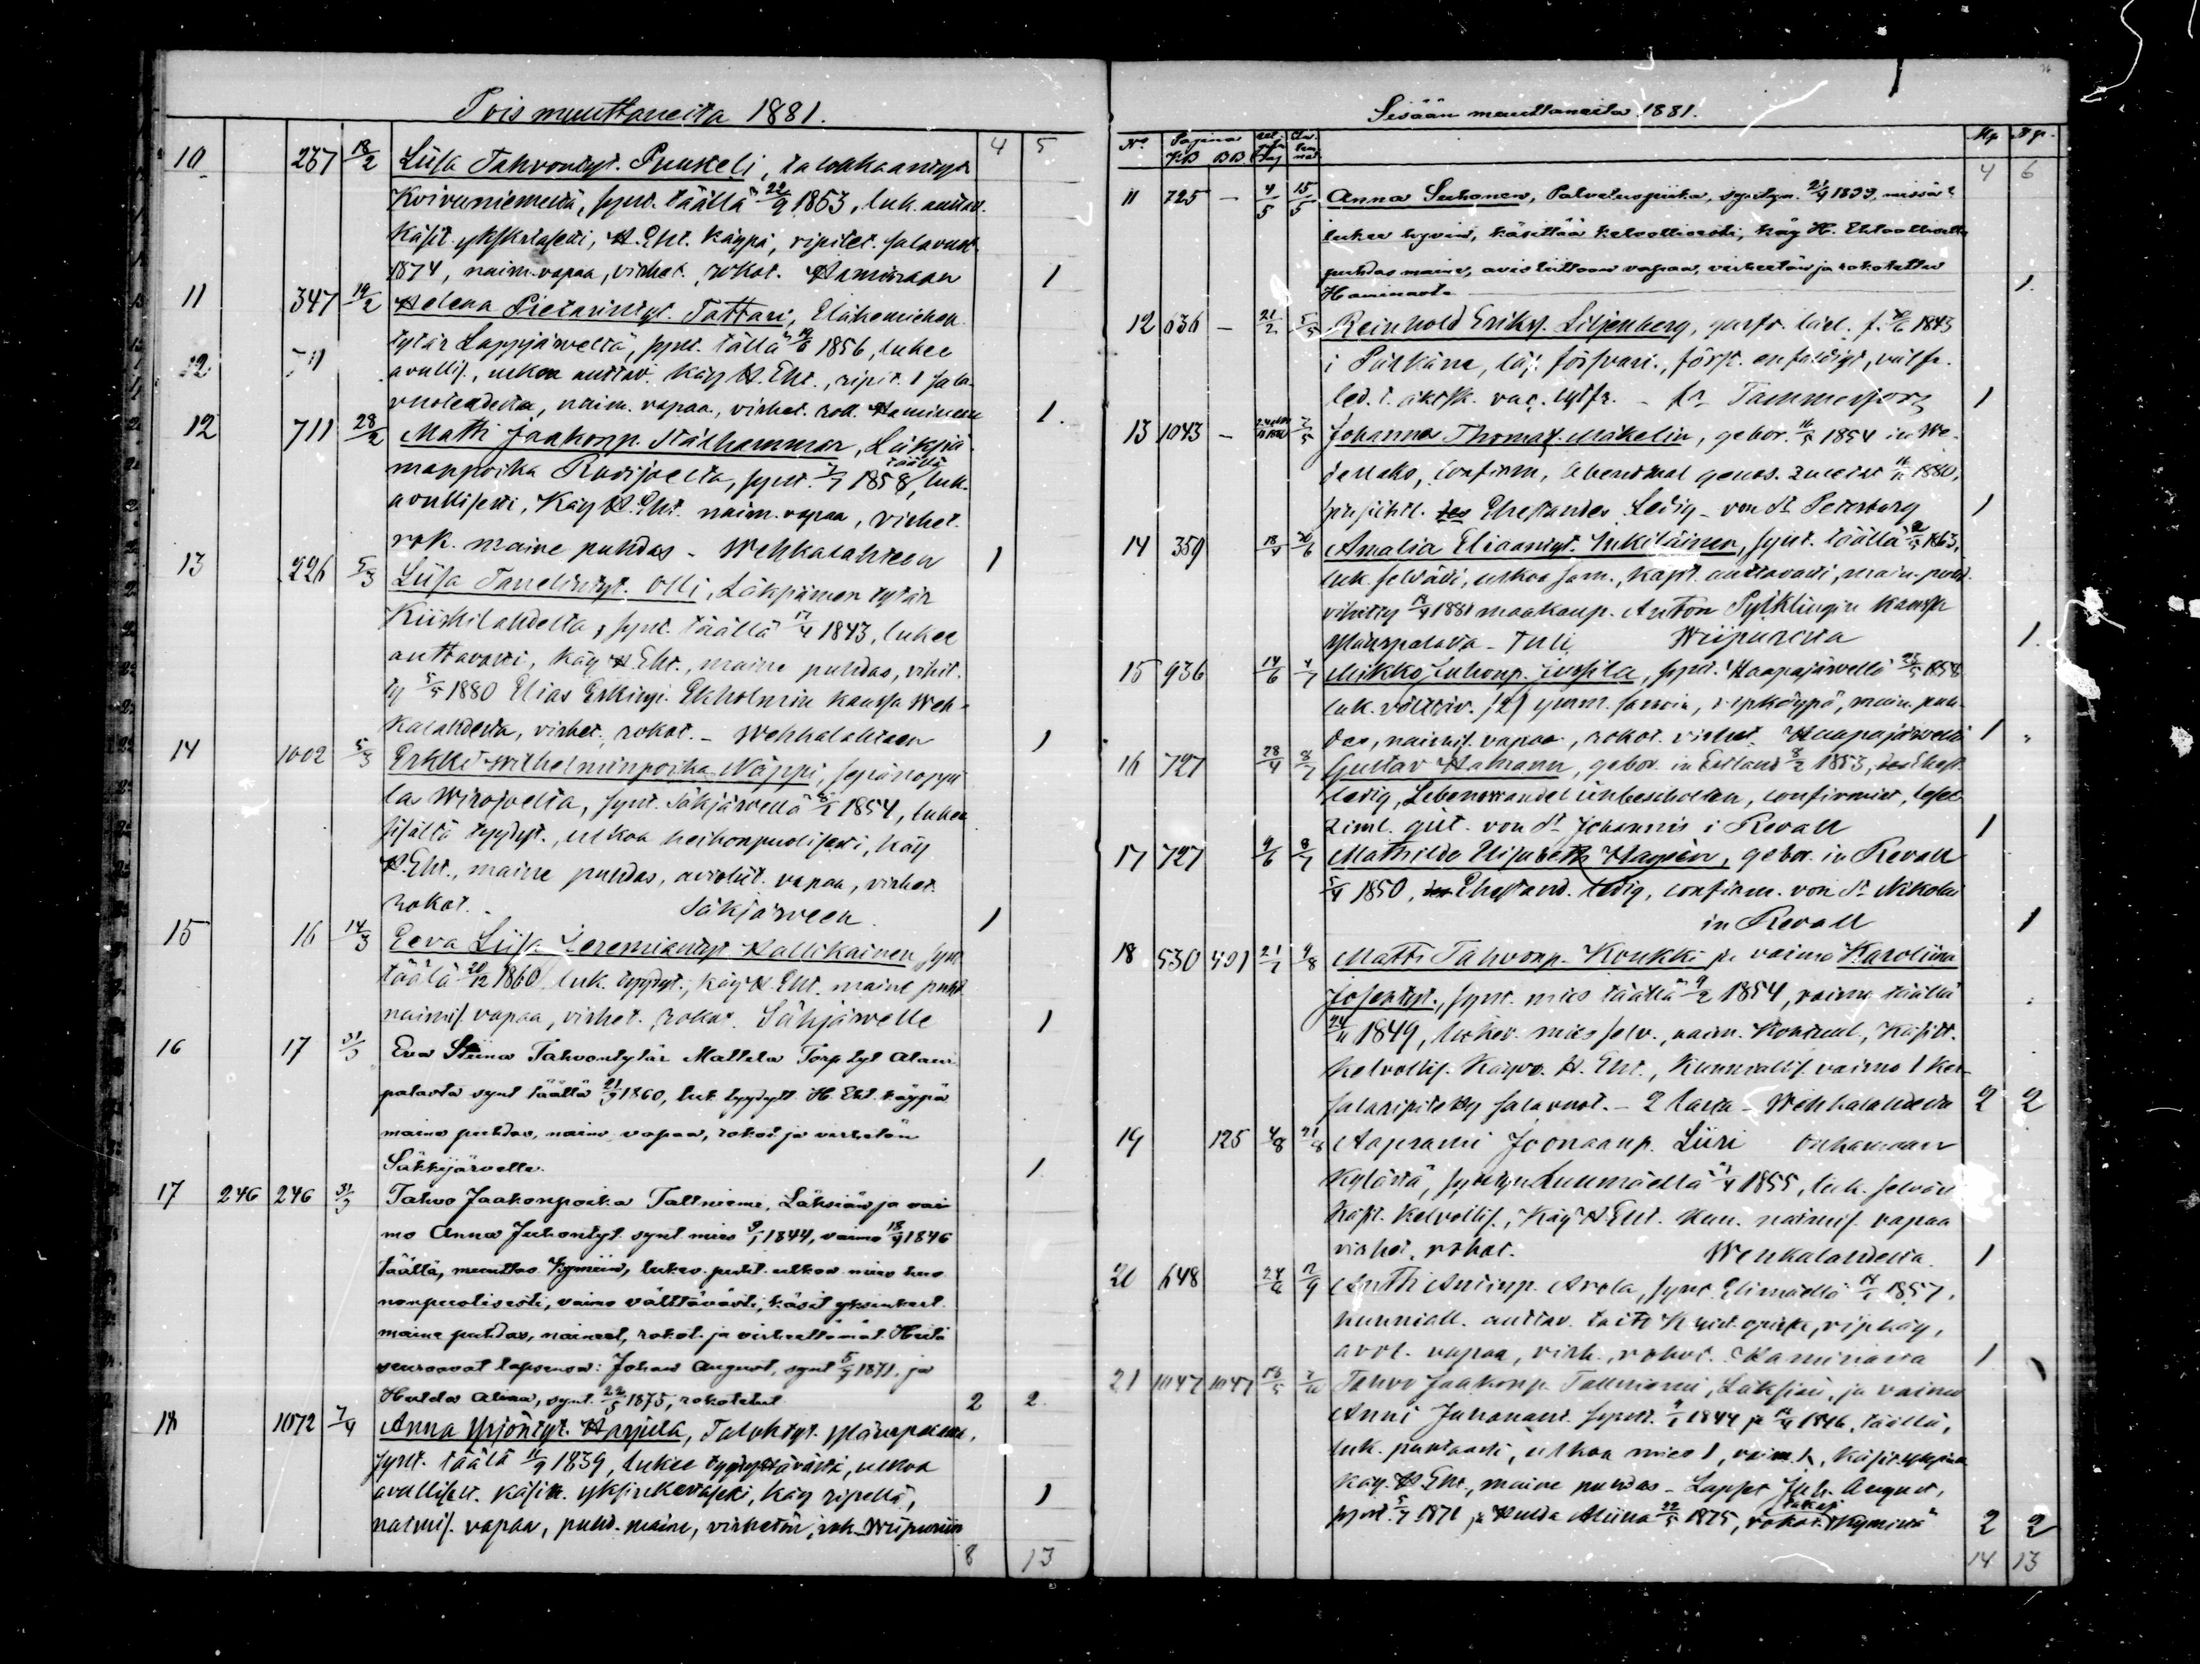 Pois muuttaneita 1881.
4 5
10 237 18/2 Liisa Tahvontyt. Puukeli, talokkaantyt.
Koivuniemestä, synt. täällä 22/9 1853, luk. auttav.
käsit. yksikertasesti, H. Eht. käypä, ripitet. salavuot.
1874, naim. vapaa, virhet., rokot. Haminaan 1
11 347 19/2 Helena Pietarintyt. Tattari, Eläkemiehen
tytär Lappjärveltä, synt. täällä 1856, lukee
avullis., ulkoa auttav. käy H. Eht., ripit. 1 sala-
vuoteudelta, naim. vapaa, virhet. rok. Haminaan 1.
12 711 28/2 Matti Jaakonp. Stålhammar, Läksiä-
mäppoika Ravijoelta, synt. täällä 1858, luk.
avullisesti, käy H. Eht. naim. vapaa, virhet.
rok. maine puhdas - Wehkalahteen 1
13 226 5/3 Liisa Taneli​ntyt. Olli, Läksiämen tytär
Kiiskilahdelta, synt. täällä 17/4 1843, lukee
auttavasti, käy H. Eht., maine puhdas, vihit-
ty 5/5 1880 Elias Erkinp. Ekholmin kanssa Weh-
kalahdesta, virhet., rokot. - Wehkalahteen 1
14 1002 5/3 Erkki Wilhelminpoika Näppi, sepänoppi-
las Wirojoelta, synt. Säkjärvellä 1854, lukee
sisältä tyydyt., ulkoa heikonpuolisesti, käy
H. Eht., maine puhdas, avioliit. vapaa, virhet.
rokot. Säkjärveen 1
15 16 14/3 Eeva Liisa Jeremiantyt Hallikainen synt.
täälä 20/12 1860 luk. tyydyt., käy H. Eht. maine puhd.
naimis. vapaa, virhet. rokot. Säkjärvelle 1
16 17 31/3 Eva Stiina Tahvontytär Mattila Torp. tyt Alaur-
palasta synt täällä 21/9 1860, luk. tyydytt. H. Eht. käypä
maine puhdas, naim. vapaa, rokot ja virhetön
Säkkijärvelle. 1
17 246 246 31/3 Tahvo Jaakonpoika Tallniemi, Läksiäis ja vai-
mo Anna Juhontyt. synt mies 9/1 1844, vaimo 18/4 1846
täällä, muuttaa Kymiin, lukev. puht. ulkoa mies huo
nonpuolisesti, vaimo välttävästi, käsit yksinkert.
maine puhdas, naineet, rokot. ja virheettömät. Heitä
seuraavat lapsensa: Johan August, synt 5/7 1871, ja
Hulda Alina, synt. 22/5 1875, rokotetut. 2 2
18 1072 7/4 Anna Yrjöntyt. Harjula, Taloktyt. Ylänspalasta,
synt. täälä 16/9 1839, lukee tyydyttävästi, ulkoa
avullisest. käsitt. yksinkertasesti, käy ripellä, 1
naimis. vapaa, puhd. maine, virhetön, rok. Wiipuriin
8 13
Sisään muuttaneita 1881.
No Pagina KB BB Mp Np.
4 6
11 725 - 4/5 15/5 Anna Suhonen, Palveluspiika, syntyn. missä?
lukee hyvin, käsittää kelvollisesti, käy H. Ehtoollisella
puhdas maine, avioliittoon vapaa, virheetön ja rokotettu
Haminasta 1.
12 636 - 21/2 5/5 Reinhold Eriksp. Liljenberg, garfv. lärl. f. 1843
i Pälkäne, läs. försvarl., först. enfaldigt, välfr.
led. t. äktsk. vac. lytfr. - fr Tammerfors 1
13 1043 - 7/5 Johannes Thomasp. Mäkelin, gebor. 16/5 1854 in We-
denats, confirm, Abendmal genos. zuletzt 1880,
hinsichtl. des Ehestandes Ledig - von St. Petersburg 1
14 359 18/4 20/6 Amalia Eliaantyt. Inkiläinen, synt. täällä 1863,
luk. selvästi, ulkoa sam., käsit. auttavasti, main. puhd.
vihitty 1881 maakaup. Anton Pylklingin kanssa
Yläurpalasta - tuli Wiipurista 1.
15 936 14/6 4/7 Mikko Juhonp. Jussila, synt. Haapajärvellä 1858
luk. välttäv. (2) ymm. samoin, ripkäypä, main. puh-
das, naimis. vapaa, rokot. virhet. Haapajärveltä 1
16 727 28/4 8/7 Gustav Hamann, gebor. in Estland 8/2 1853, Ehest.
ledig, Lebenswandel unbescholten, confirmirt, lesel
ziml. gut. von St. Johannis i Revall 1
17 727 9/6 8/7 Mathilde Elisabeth Hagsén, gebor. in Revall
1850, Ehestand. ledig, confirm. von St. Nikolai
in Revall 1
18 530 401 21/7 4/8 Matti Tahvonp. Koukki ja vaimo Karoliina
Josentyt., synt. mies täällä 9/2 1854, vaimo täällä
24/11 1849, lukev. mies selv., vaim. kohtuul, käsitt.
kelvollis. käyvä H. Eht., kunniallis. vaimo 1 ker-
salaripitetty salavuot. - 2 lasta - Wehkalahdelta 2 2
19 125 4/8 21/8 Aaprami Joonaanp. Liiri Onkamaan
kylästä, syntyn. Luumäellä 1855, luk. selväst
käsit. kelvollis., käy H. Eht. kun. naimis. vapaa
virhet. rokot. Wehkalahdelta. 1
20 648 24/6 2/9 Antti Antinp. Arola, synt. Elimäellä 1857,
kunniall. auttav. taito K. rist. opissa, rip. käy,
aviol. vapaa, virh., rokot. Haminasta 1
21 1047 1047 Tahvo Jaakonp. Tallniemi, Läksiäis, ja vaimo
Anni Juhonant. synt. 9/1 1844 ja 18/4 1846, täällä,
luk. puhtaasti, ulkoa mies 1, vaim. 1, käsit. yksink.
käy. H. Eht., maine puhdas - Lapset Juh. August,
synt. 5/7 1871 ja Hulda Aliina 22/5 1875, rokot. Kymistä 2 2
14 13